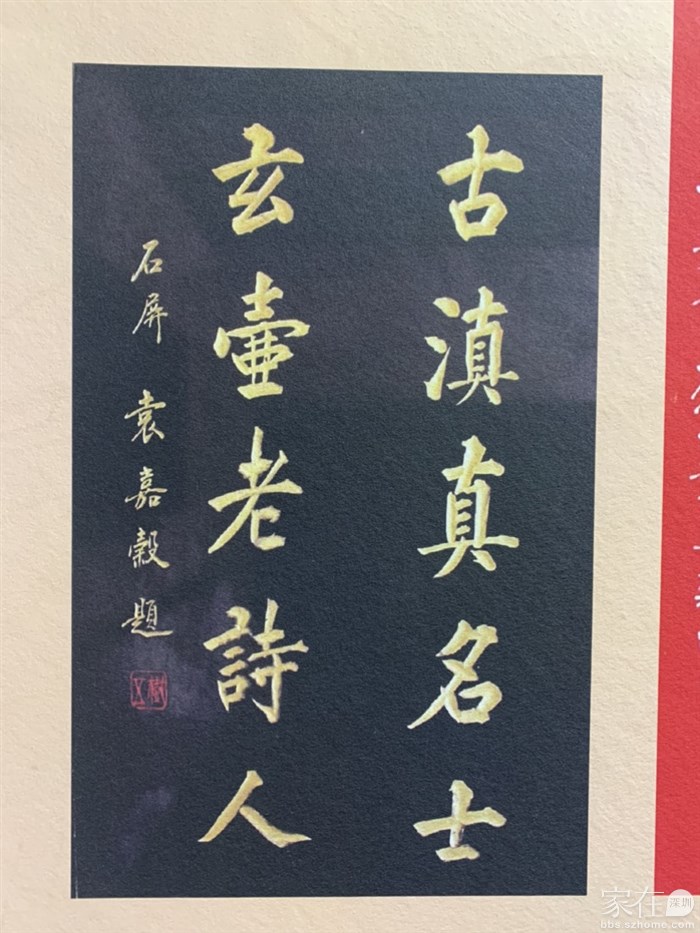 古滇真名士
玄壺老詩人
石屏 袁嘉穀題
樹五
家在深圳
bbs.szhome.com